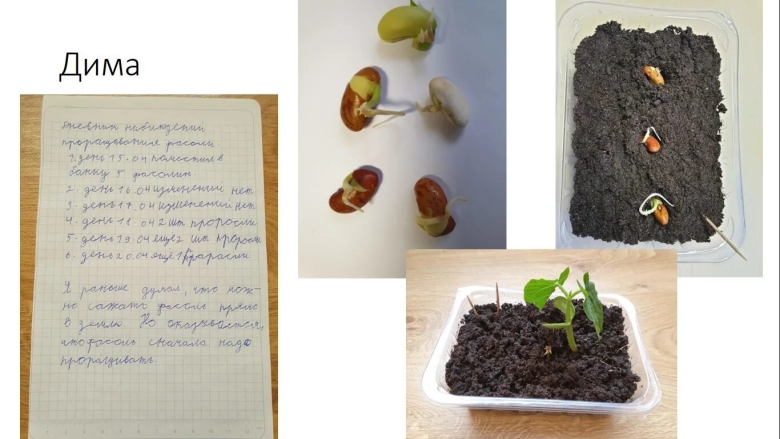 Дима
Дневник наблюдений
проращивания фасоли
1. день 15.04 поместил в
банку 5 фасолин
2. день 16.04 изменений нет
3. день 17.04 изменений нет
4. день 18.04 2 шт проросли
5. день 19.04 еще 2 шт проросли
6. день 20.04 еще 1
Я раньше думал, что мож-
но сажать фасоль прямо
в землю. Но оказывается,
что фасоль сначала надо
проращивать